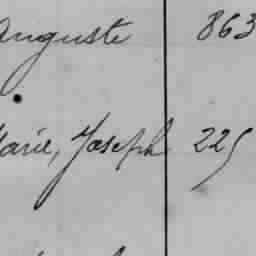 Auguste 863
Marie, Joseph 225